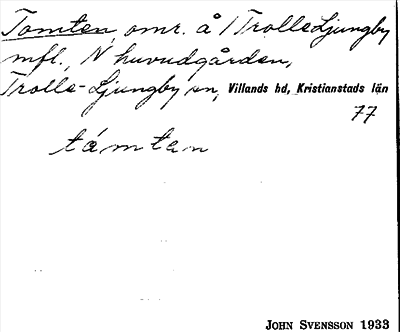 Tomten, omr. å 1 Trolle Ljungby
mfl., N huvudgården,
Trolle-Ljungby sn, Villands hd, Kristianstads län
77
támten
JOHN SVENSSON 1933